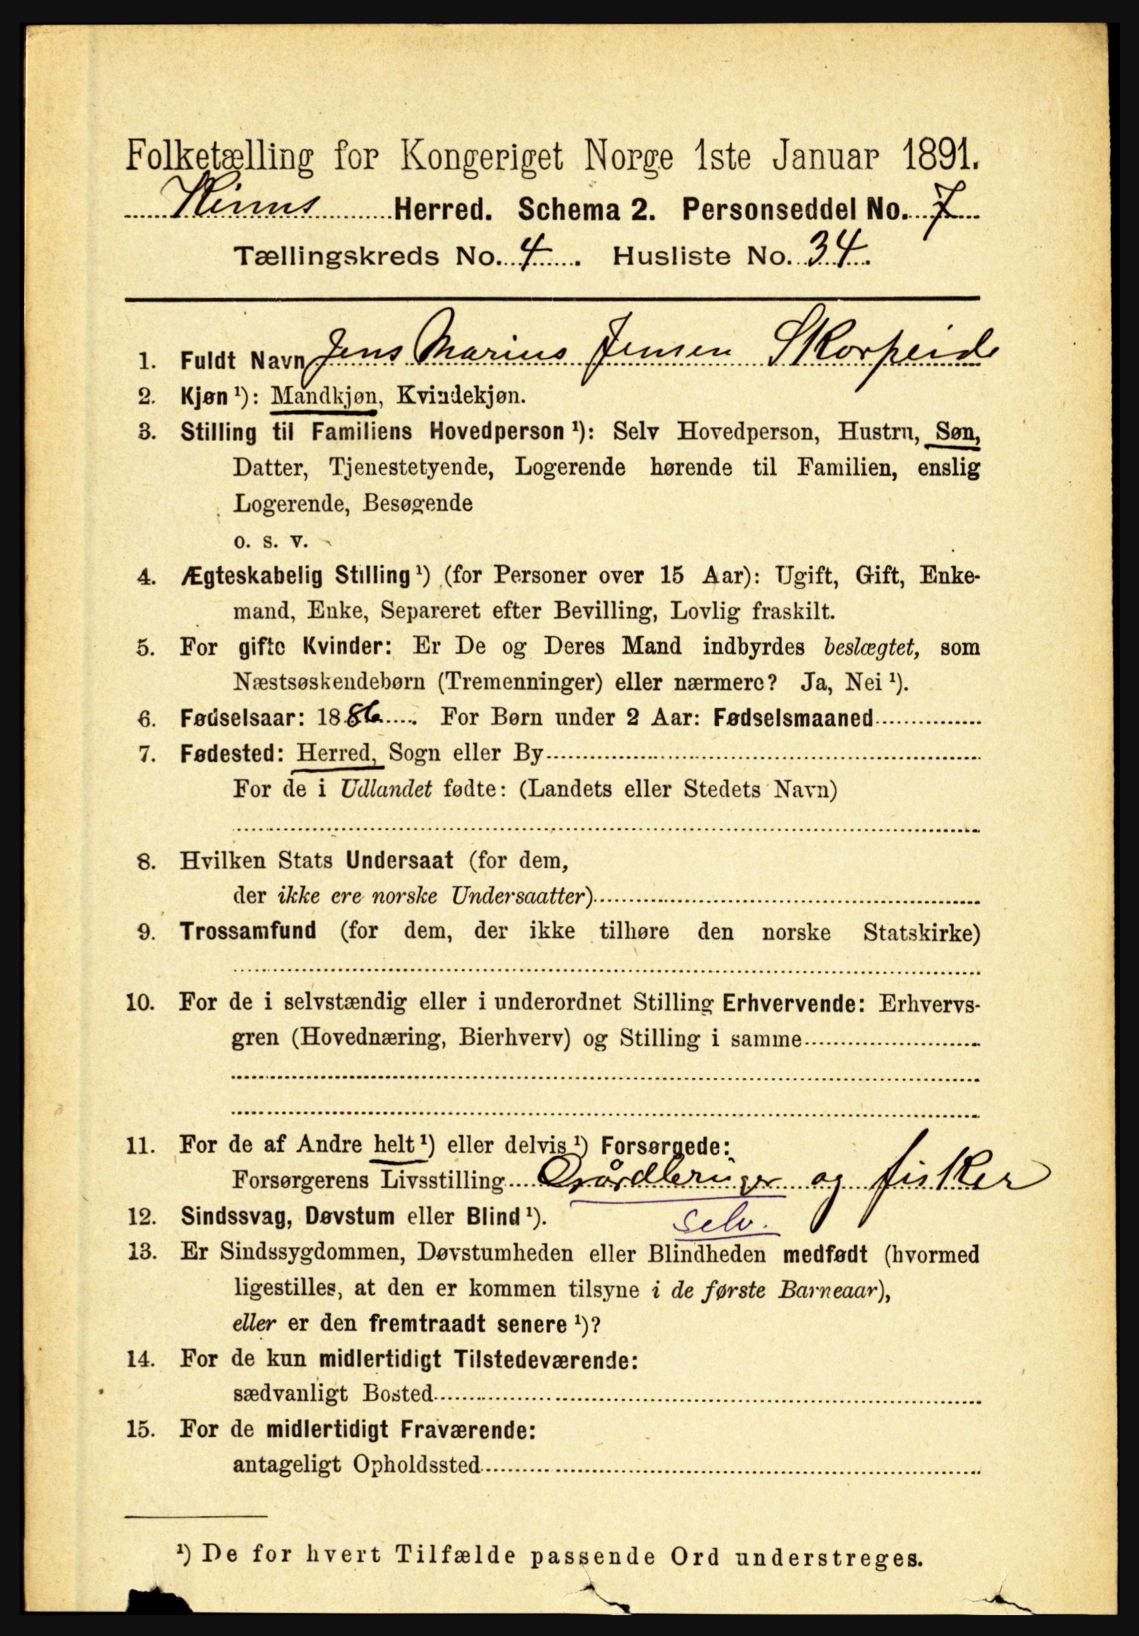 Folketælling for Kongeriget Norge 1ste Januar 1891.
Kinns Herred. Schema 2. Personseddel No. 7
Tællingskreds No. 4. Husliste No. 34.
1. Fuldt Navn Jens Marius Jensen Skorpeide
2. Kjøn ¹): Mandkjøn, Kvindekjøn.
3. Stilling til Familiens Hovedperson ¹): Selv Hovedperson, Hustru, Søn,
Datter, Tjenestetyende, Logerende hørende til Familien, enslig
Logerende, Besøgende
o. s. v.
4. Ægteskabelig Stilling ¹) (for Personer over 15 Aar): Ugift, Gift, Enke-
mand, Enke, Separeret efter Bevilling, Lovlig fraskilt.
5. For gifte Kvinder: Er De og Deres Mand indbyrdes beslægtet, som
Næstsøskendebørn (Tremenninger) eller nærmere? Ja, Nei ¹).
6. Fødselsaar: 1886. For Børn under 2 Aar: Fødselsmaaned
7. Fødested: Herred, Sogn eller By
For de i Udlandet fødte: (Landets eller Stedets Navn)
8. Hvilken Stats Undersaat (for dem,
der ikke ere norske Undersaatter)
9. Trossamfund (for dem, der ikke tilhøre den norske Statskirke)
10. For de i selvstændig eller i underordnet Stilling Erhvervende: Erhvervs-
gren (Hovednæring, Bierhverv) og Stilling i samme
11. For de af Andre helt ¹) eller delvis ¹) Forsørgede:
Forsørgerens Livsstilling Gårdbruger og fisker
12. Sindssvag, Døvstum eller Blind ¹). Selv.
13. Er Sindssygdommen, Døvstumheden eller Blindheden medfødt (hvormed
ligestilles, at den er kommen tilsyne i de første Barneaar),
eller er den fremtraadt senere ¹)?
14. For de kun midlertidigt Tilstedeværende:
sædvanligt Bosted
15. For de midlertidigt Fraværende:
antageligt Opholdssted
¹) De for hvert Tilfælde passende Ord understreges.